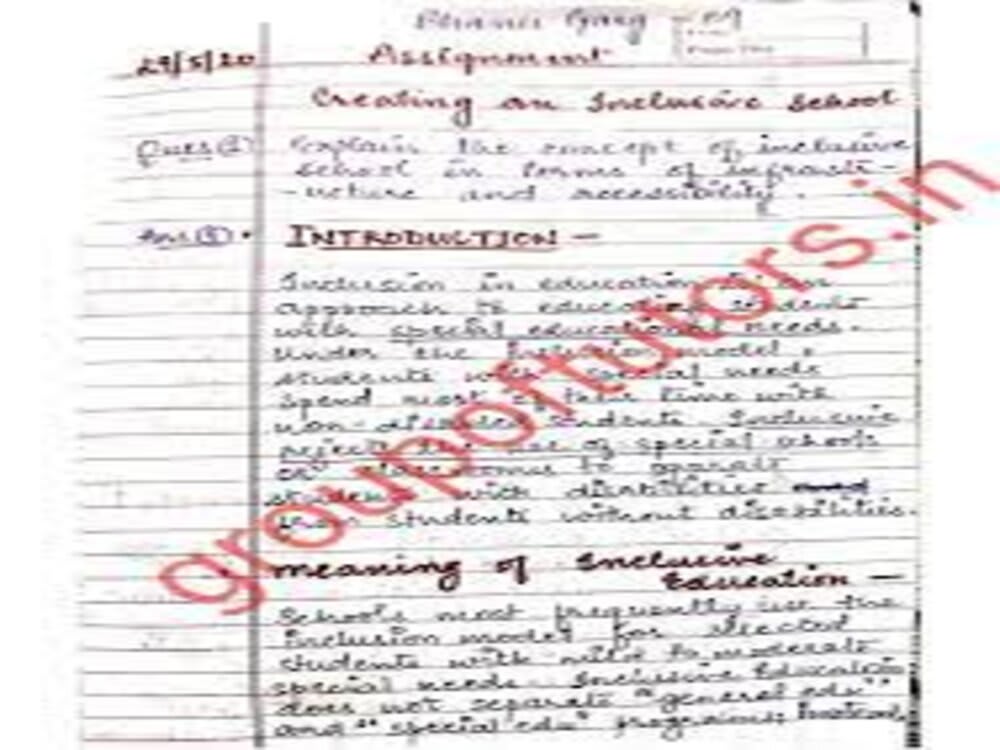 Bhanu Garg - 09
29/5/20 Assignment
Creating an Inclusive School
Ques(1) Explain the concept of inclusive
school in terms of infrastr-
-ucture and accessibility.
Ans(1). INTRODUCTION -
Inclusion in education is an
approach to educating students
with special educational needs.
Under the Inclusion model,
students with special needs
spend most of their time with
non-disabled students. Inclusive
rejects the use of special schools
or classrooms to separate
students with disabilities
from students without disabilities.
Meaning of Inclusive
Education -
Schools most frequently use the
inclusion model for selected
students with mild to moderate
special needs. Inclusive Education
does not separate "general edu"
and "special edu" programs;
groupoftutors.in